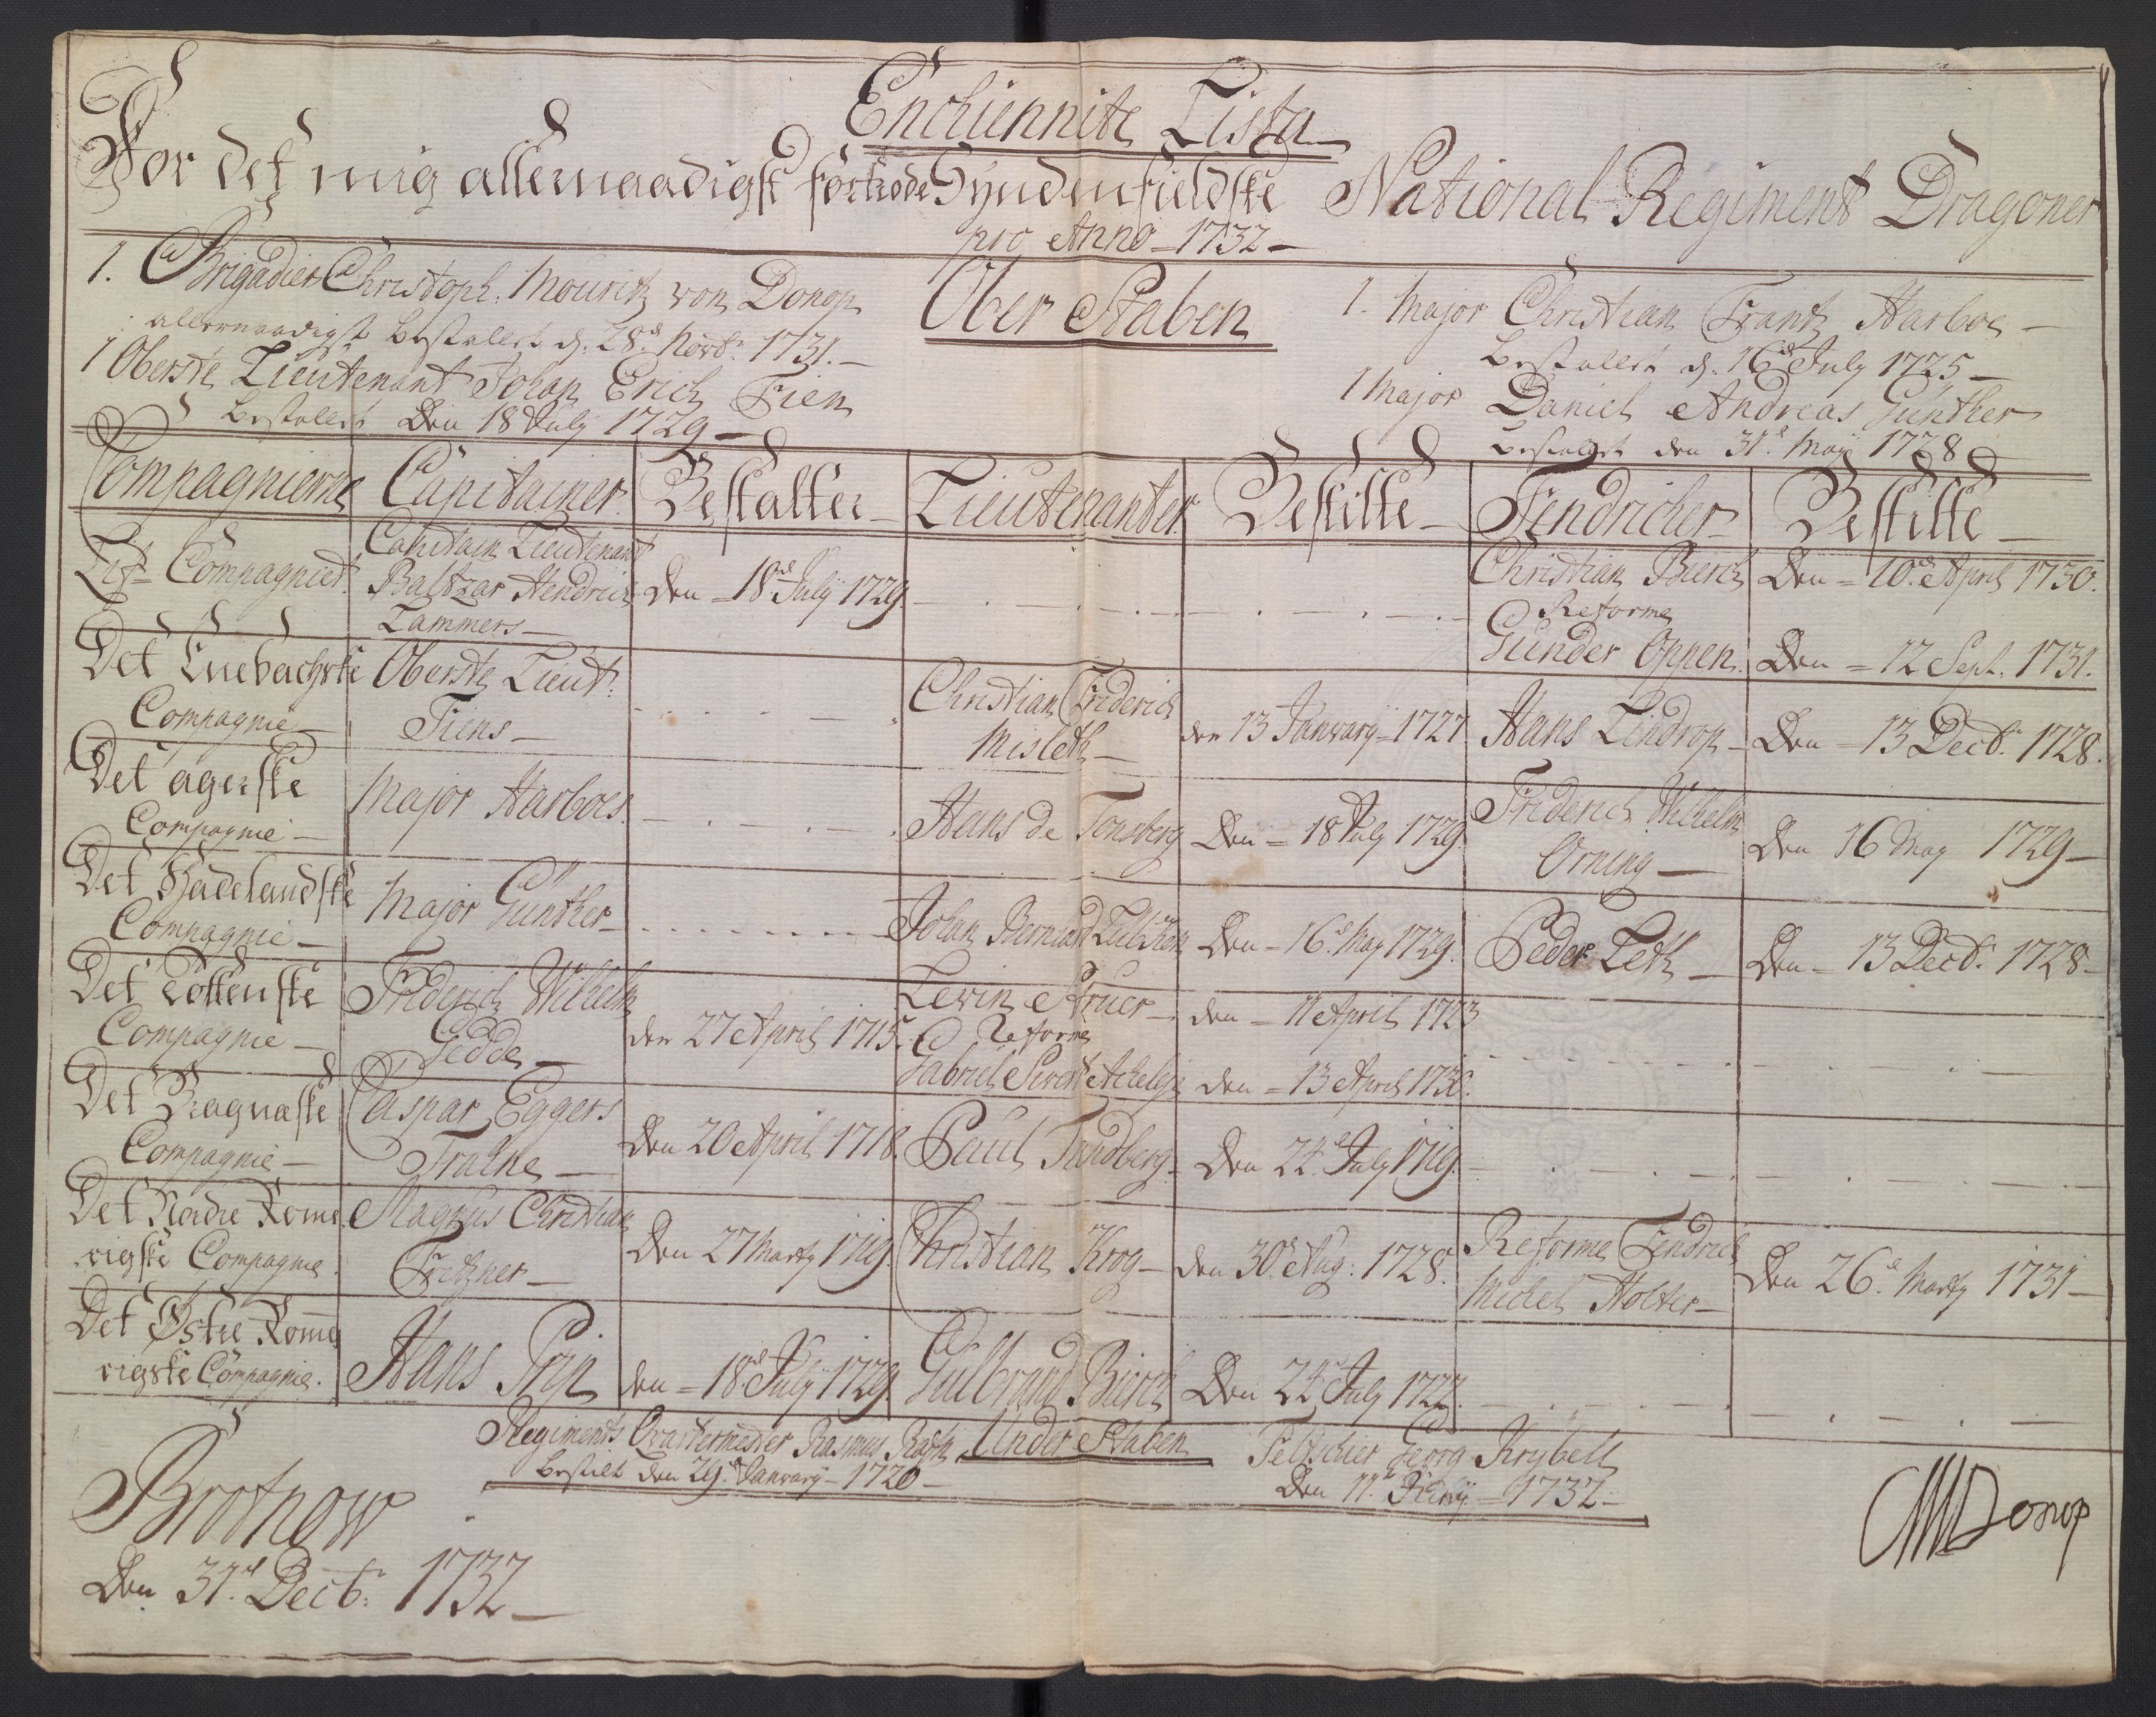 Enchiennite Lista
For det mig allernaadigst fortrode Syndenfieldske National Regiment Dragoner
pro Anno 1732
Ober Staben
1. Brigadier Christoph: Mouritz von Donop
allernaadigst bestallet d: 28d Novbr: 1731.
1 Oberste Lieutenant Johan Erich Fien
bestallet den 18 July 1729
1. Major Christian Frantz Harboe
bestallet d: 16d July 1725
1 Major Daniel Andreas Günther
bestallet den 31d: May 1728
Compagnierne Capitainer Bestalter Lieutenanter Bestilte Fendricher Bestilte
Lif Compagniet. Capitain Lieutenant Baltzar Hendrich Lammers den 18d July 1729 Christian Bierch Den 10d April 1730.
Reforme Gunder Oppen. Den 12 Sept. 1731.
Det Enebachske Compagnie Oberste Lieut: Fiens Christian Friderich Misleth den 13 January 1727 Hans Lindrop Den 13 Decb: 1728.
Det agerske Compagnie Major Harboes. Hans de Tonsberg Den 18 July 1729. Friderich Wilhelm Orning Den 16 May 1729
Det Hadelandske Compagnie Major Günther Johan Bernhard Lulchen Den 16d May 1729. Peder Leth Den 13 Decb: 1728
Det Tottenske Compagnie Friderich Wilhelm Gedde den 27 April 1715. Lewin Struer den 11 April 1723
Reforme Gabriel Sivert Acheley den 13 April 1730.
Det Bragnæske Compagnie Caspar Eggers Tralne Den 20 April 1718. Paul Tundberg Den 24d July 1719.
Det Nordre Rome rigske Compagnie Magnus Christian Fritzner Den 27 Marty 1719. Christian Krog den 30d Aug: 1728. Reforme Fendrich Michel Holter Den 26d: Marty 1731
Det Østre Rome rigske Compagnie. Hans Prip den 18d July 1729. Gulbrand Bierch Den 24d July 1727.
Under Staben
Regiments Qvartermester Rasmus Rash
bestilt den 29d January 1720
Feltskier Georg Krybell
Den 11d 1732
Brotnow
Den 31d: Decb: 1732
CMVDonop